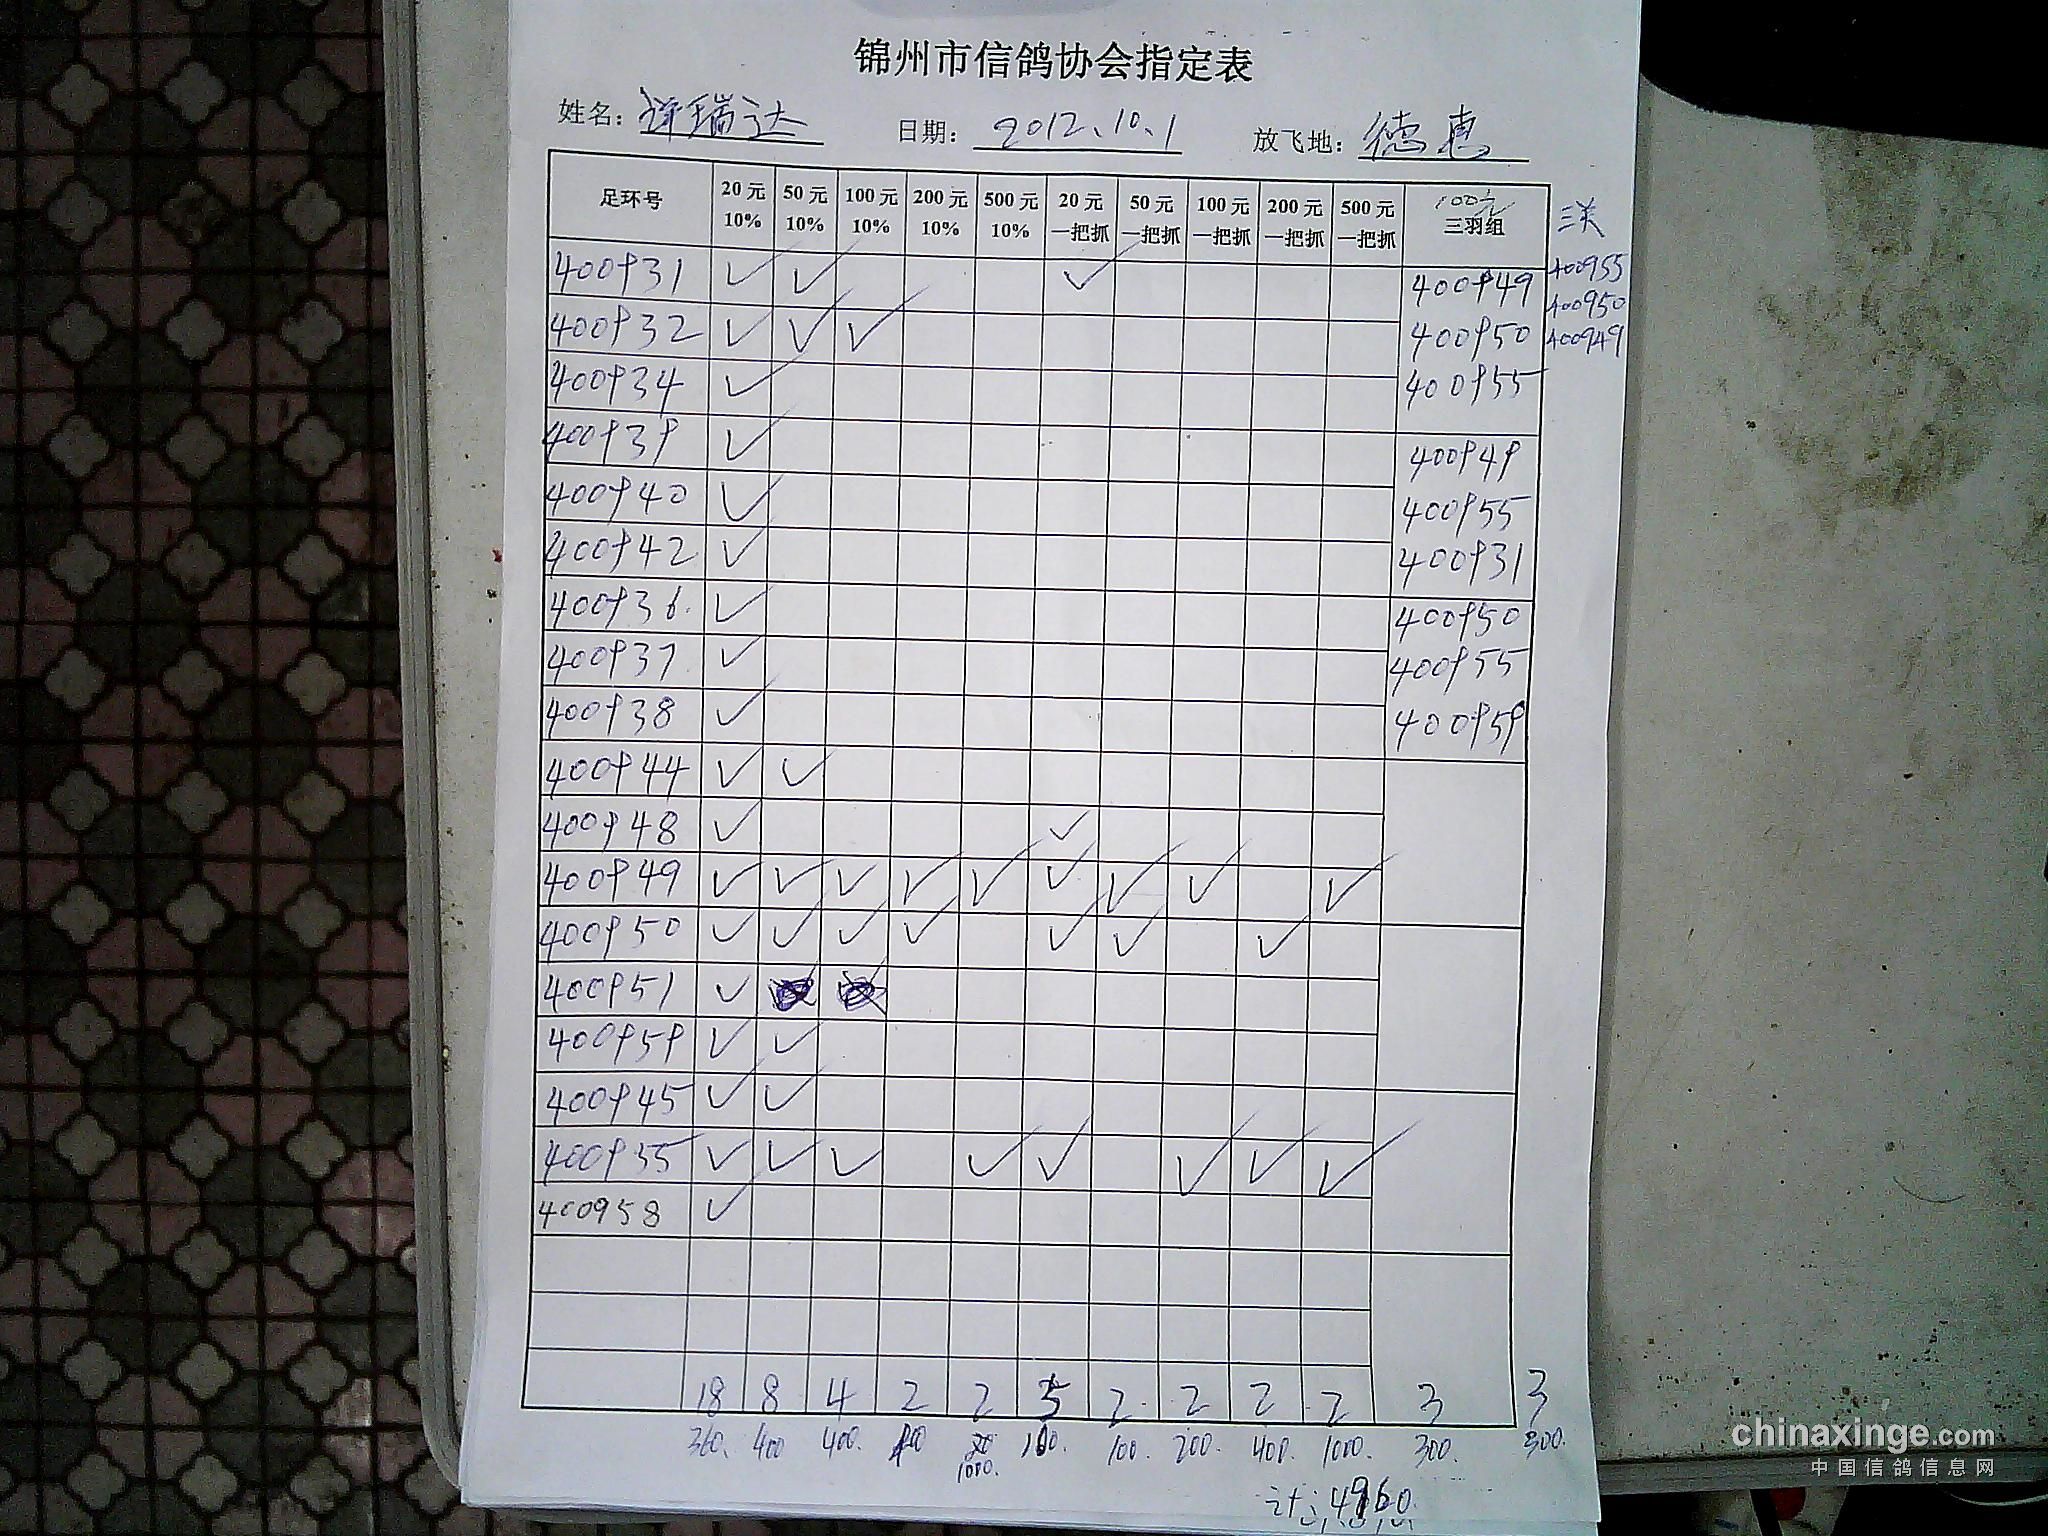 锦州市信鸽协会指定表
姓名：许瑞达 日期：2012、10、1 放飞地：德惠
足环号 20元 10% 50元 10% 100元 10% 200元 10% 500元 10% 20元 一把抓 50元 一把抓 100元 一把抓 200元 一把抓 500元 一把抓 100元 三羽组 三关
400931 ✓ ✓ ✓
400932 ✓ ✓ ✓
400934 ✓
400939 ✓
400940 ✓
400942 ✓
400936. ✓
400937 ✓
400938 ✓
400944 ✓ ✓
400948 ✓ ✓
400949 ✓ ✓ ✓ ✓ ✓ ✓ ✓ ✓ ✓
400950 ✓ ✓ ✓ ✓ ✓ ✓ ✓
400951 ✓
400959 ✓ ✓
400945 ✓ ✓
400955 ✓ ✓ ✓ ✓ ✓ ✓ ✓ ✓
400958 ✓
400949
400950
400955
400949
400955
400931
400950
400955
400959
400955
400950
400949
18 8 4 2 2 5 2 2 2 2 3 3
360. 400 400. 400 1000. 100. 100. 200. 400. 1000. 300. 300.
计：4960
chinaxinge.com
中国信鸽信息网